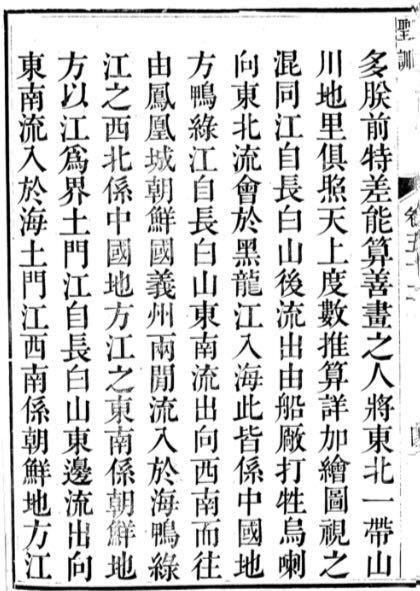 聖訓
多朕前特差能算善畫之人將東北一帶山
川地里俱照天上度數推算詳加繪圖視之
混同江自長白山後流出由船廠打牲烏喇
向東北流會於黑龍江入海此皆係中國地
方鴨綠江自長白山東南流出向西南而往
由鳳凰城朝鮮國義州兩閒流入於海鴨綠
江之西北係中國地方江之東南係朝鮮地
方以江爲界土門江自長白山東邊流出向
東南流入於海土門江西南係朝鮮地方江